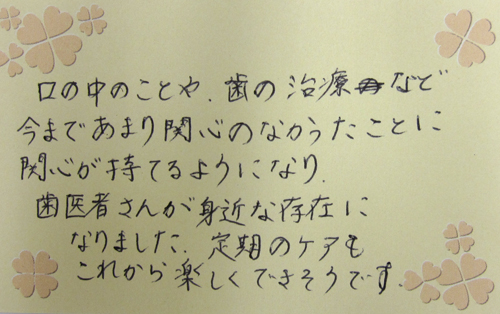 口の中のことや、歯の治療など
今まであまり関心のなかったことに
関心が持てるようになり、
歯医者さんが身近な存在に
なりました。定期のケアも
これから楽しくできそうです。